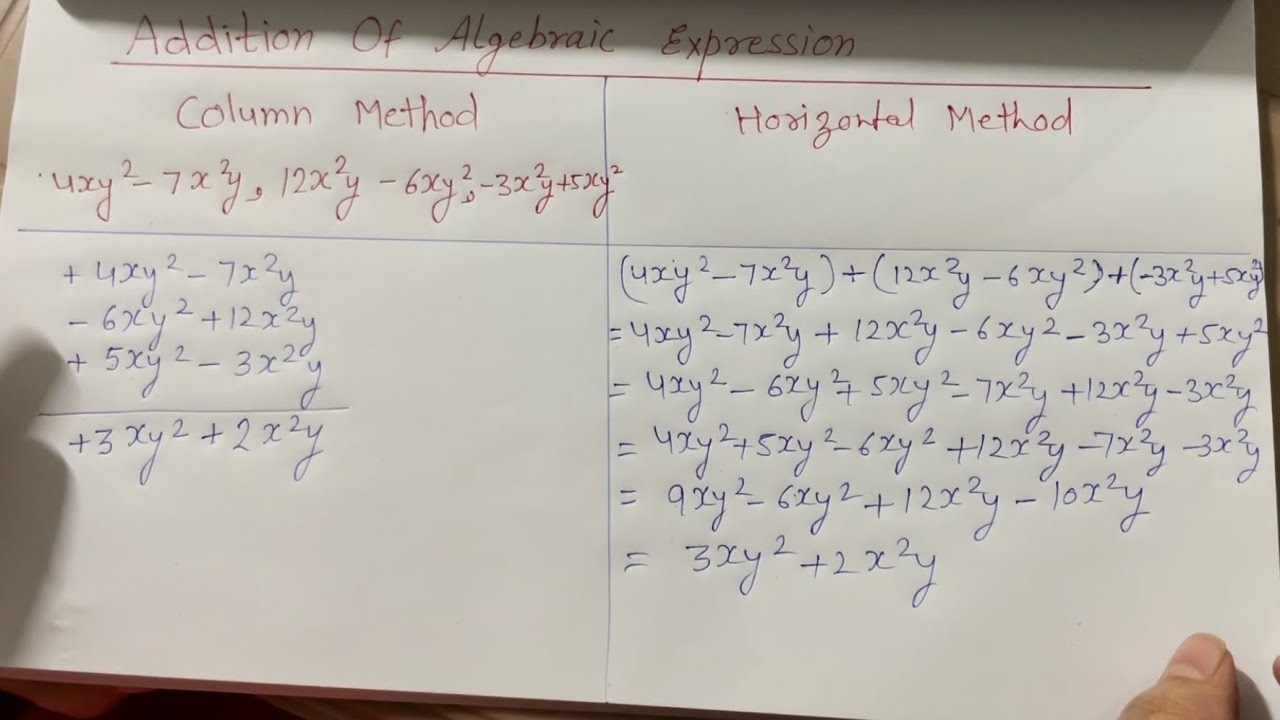 Addition Of Algebraic Expression
Column Method
4xy² - 7x²y, 12x²y - 6xy², -3x²y+5xy²
+ 4xy² - 7x²y
- 6xy² + 12x²y
+ 5xy² - 3x²y
+3xy² + 2x²y
Horizontal Method
(4xy² - 7x²y) + (12x²y - 6xy²) + (-3x²y+5xy²)
= 4xy² - 7x²y + 12x²y - 6xy² - 3x²y + 5xy²
= 4xy² - 6xy² + 5xy² - 7x²y + 12x²y - 3x²y
= 4xy² + 5xy² - 6xy² + 12x²y - 7x²y - 3x²y
= 9xy² - 6xy² + 12x²y - 10x²y
= 3xy² + 2x²y